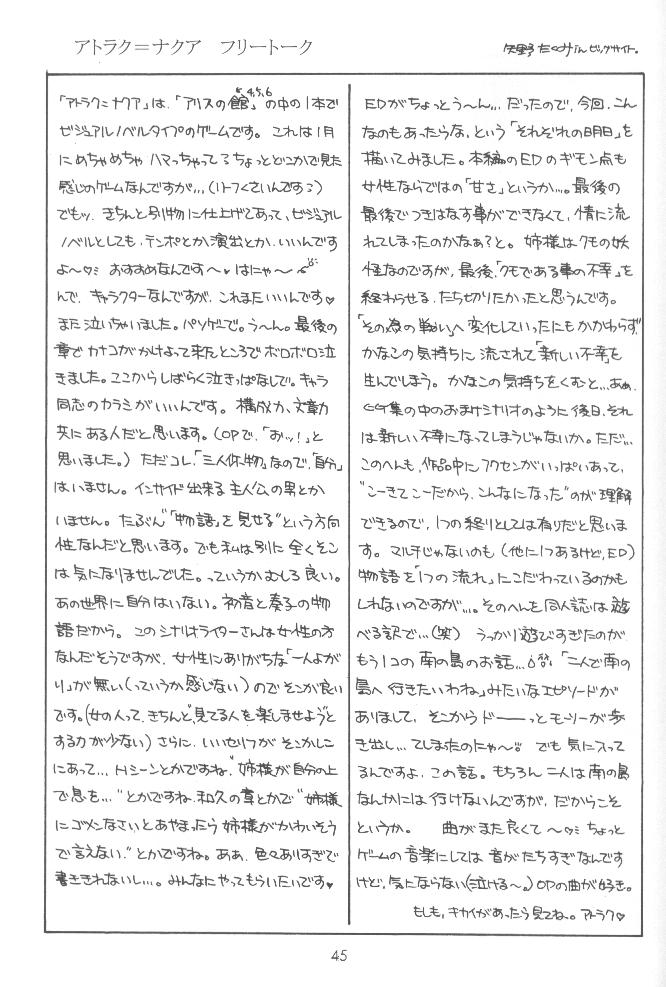 アトラク＝ナクア　フリートーク
矢野たくみin ビッグサイト。
4,5,6
「アトラク＝ナクア」は、「アリスの館」の中の1本で
ビジュアルノベルタイプのゲームです。これは1月
にめちゃめちゃハマっちゃってるちょっとどこかで見た
感じのゲームなんですが…、(リーフくさいんです？)
でもッ、きちんと別物に仕上げてあって、ビジュアル
ノベルとしても、テンポとか演出とか、いいんです
よ〜♡ おすすめなんです〜♥はにゃ〜
んで、キャラクターなんですが、これまたいいんです♥
また泣いちゃいました。パソゲーで。う〜ん。最後の
章でカナコがかけよって来たところでボロボロ泣
きました。ここからしばらく泣きっぱなしで。キャラ
同志のカラミがいいんです。構成力、文章力
共にある人だと思います。(OPで、「おッ！」と
思いました。) ただコレ、「三人体物」なので、「自分」
はいません。インサイド出来る主人公の男とか
いません。たぶん“「物語」を見せる”という方向
性なんだと思います。でも私は別に全くそこ
は気になりませんでした。っていうかむしろ良い。
あの世界に自分はいない。初音と奏子の物
語だから。このシナリオライターさんは女性の方
なんだそうですが、女性にありがちな「一人よが
り」が無い(っていうか感じない)のでそこが良い
です。(女の人って、きちんと“見てる人を楽しませよう”と
する力が少ない) さらに、いいセリフがそこかしこ
にあって…、Hシーンとかですね、“姉様が自分の上
で息を…”とかですね、和久の章とかで“姉様
にゴメンなさいとあやまったら姉様がかわいそう
で言えない。”とかですね。ああ、色々ありすぎで
書ききれないし…。みんなにやってもらいたいです♥
EDがちょっとう〜ん…だったので、今回、こん
なのもあったらな、という「それぞれの明日」を
描いてみました。本編のEDのギモン点も
女性ならではの「甘さ」というか…。最後の
最後でつきはなす事ができなくて、情に流
れてしまったのかなぁ？と。姉様はクモの妖
怪なのですが、最後、「クモである事の不幸」を
終わらせる、たち切りたかったと思うんです。
「その為の戦い」へ変化していったにもかかわらず、
かなこの気持ちに流されて「新しい不幸」を
生んでしまう。かなこの気持ちをくむと…あぁ、
CG集の中のおまけシナリオのように後日、それ
は新しい不幸になってしまうじゃないか。ただ…
このへんも、作品中にフクセンがいっぱいあって、
“こーきてこーだから、こんなになった”のが理解
できるので、1つの終りとしては有りだと思いま
す。マルチじゃないのも(他に1つあるけど、ED)
物語を「1つの流れ」にこだわっているのかも
しれないのですが…。そのへんを同人誌は遊
べる訳で…(笑)　うっかり遊びすぎたのが
もう1コの南の島のお話…。「二人で南の
島へ行きたいわね」みたいなエピソードが
ありまして、そこからドーーーっとモーリーが歩
き出し…てしまったのにゃ〜 でも気に入って
るんですよ、この話。もちろん二人は南の島
なんかには行けないんですが、だからこそ
というか。　曲がまた良くて〜♡ ちょっと
ゲームの音楽にしては音がたちすぎなんです
けど、気にならない(泣ける〜。)OPの曲が好き。
もしも、キカイがあったら見てね。アトラク♡
45